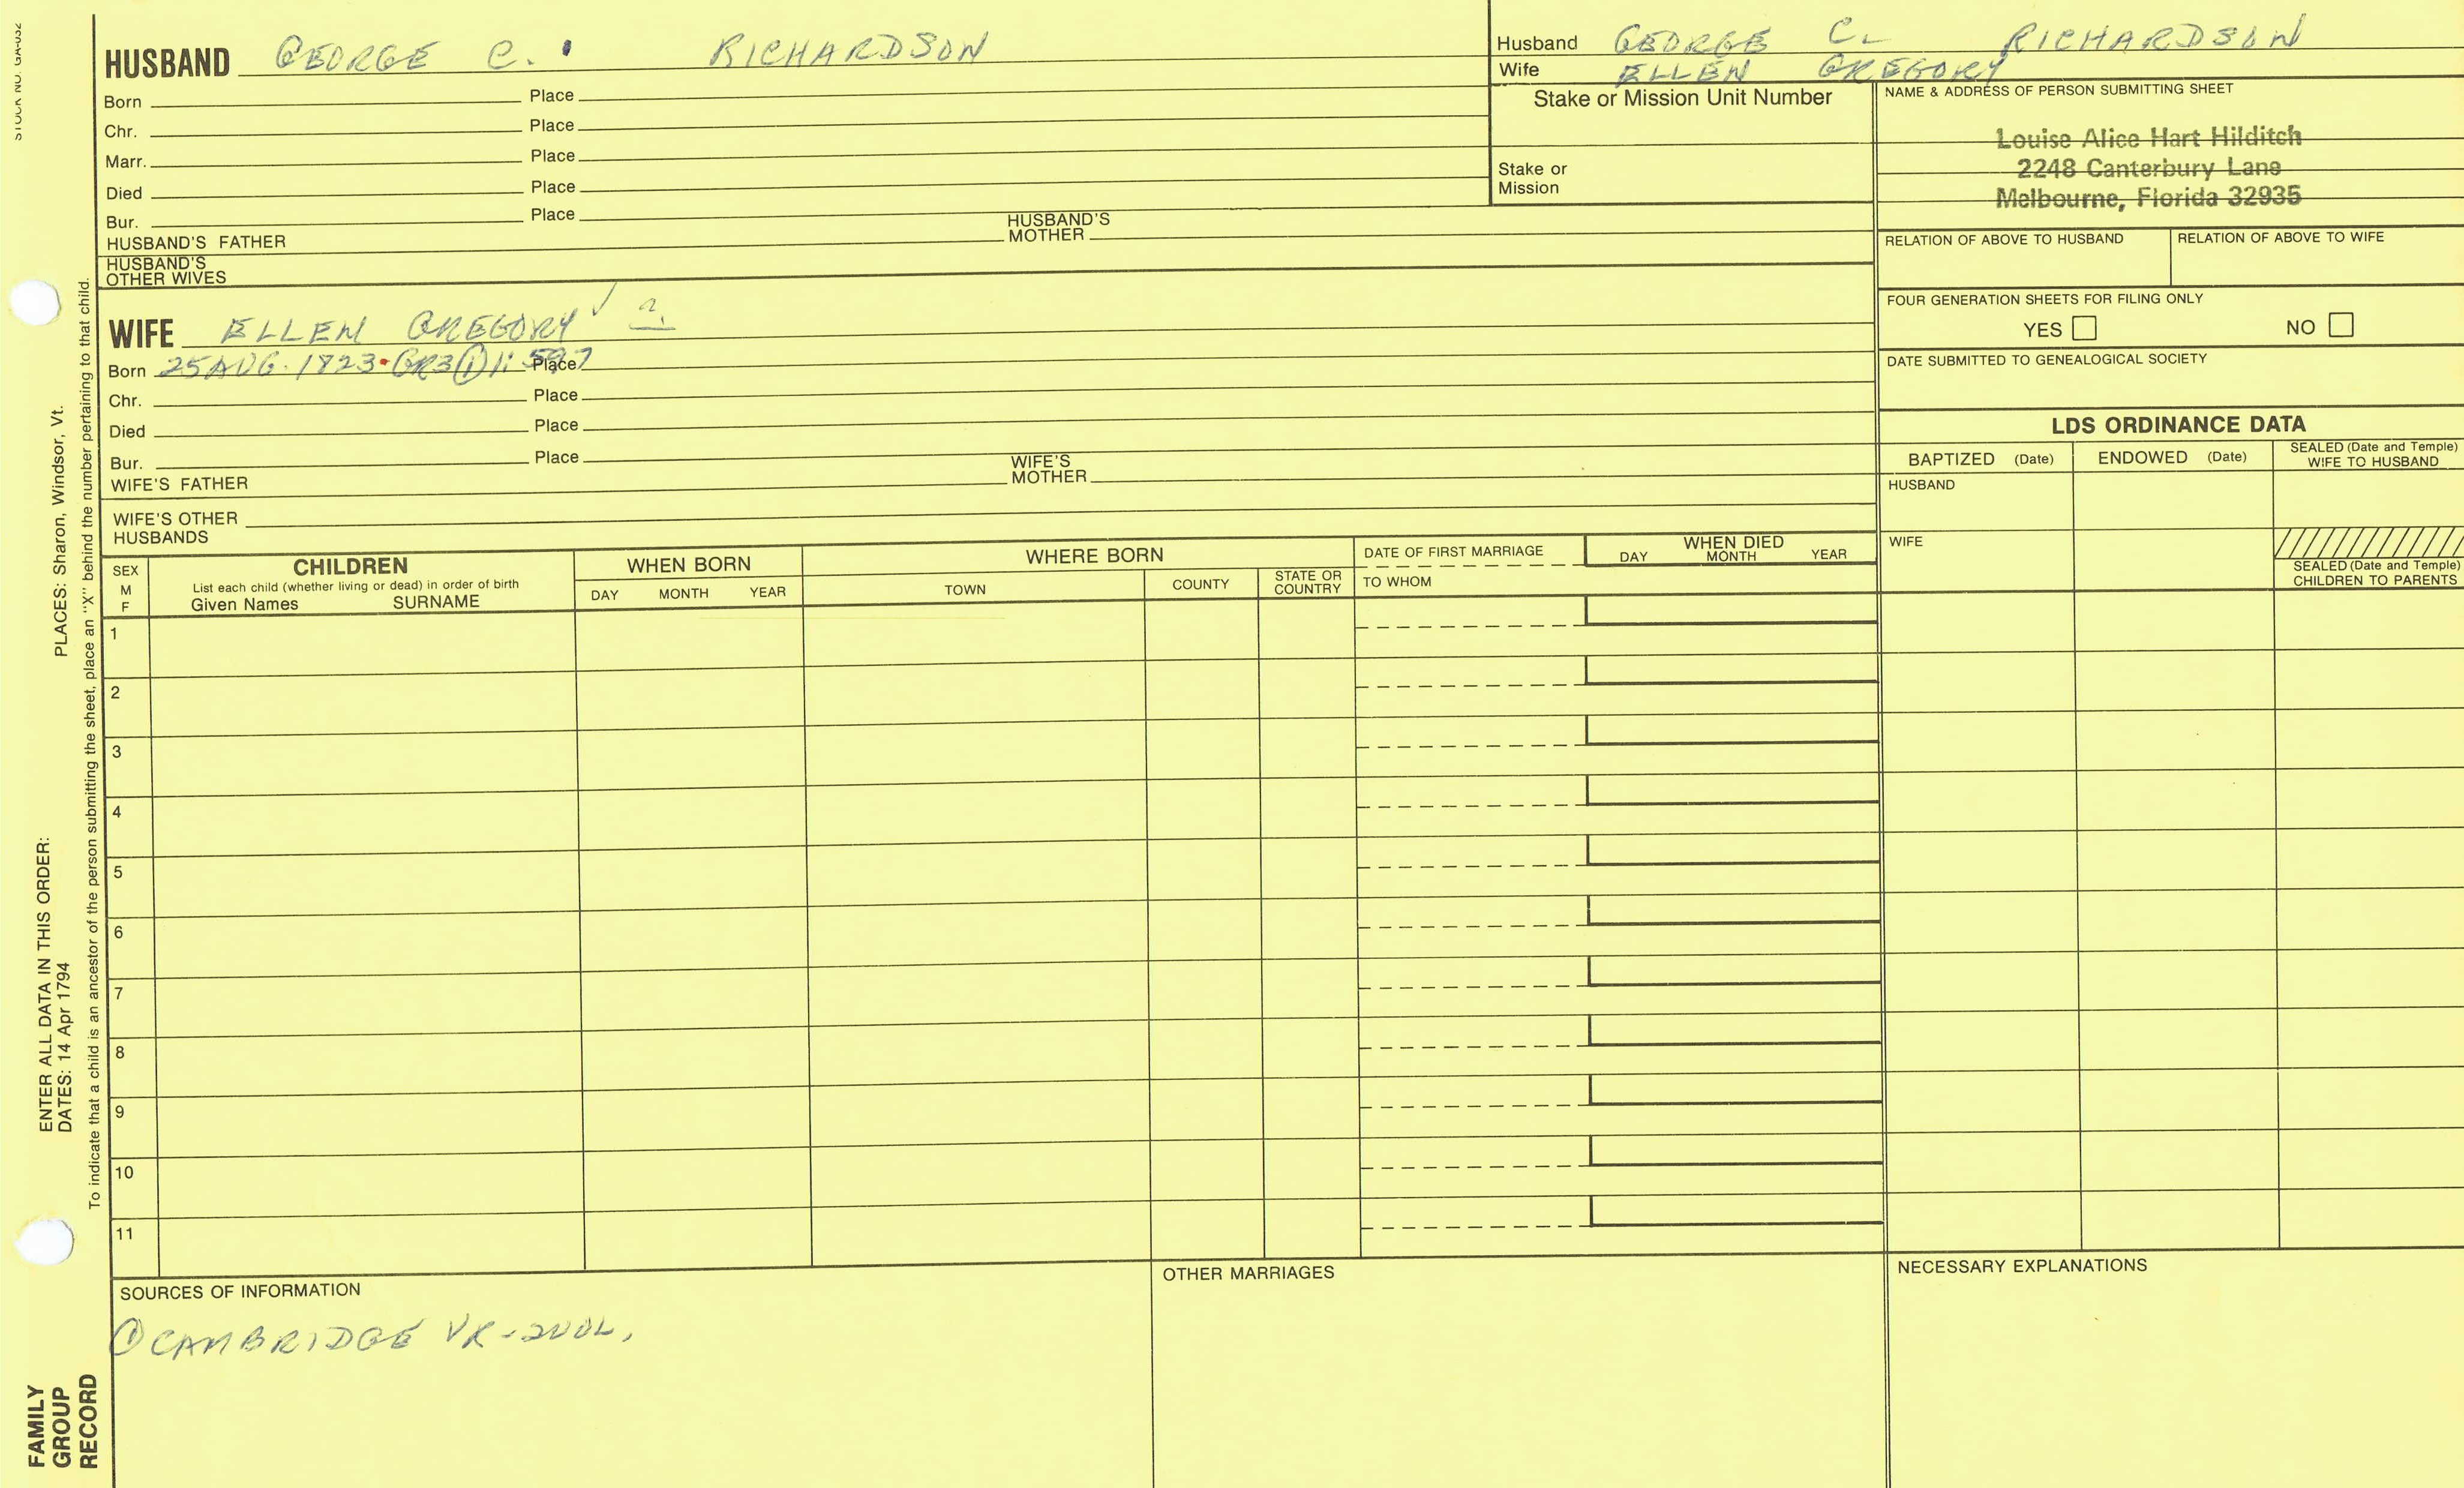 STOCK NO. GA-032
HUSBAND GEORGE C. RICHARDSON
Born Place
Chr. Place
Marr. Place
Died Place
Bur. Place
HUSBAND'S FATHER HUSBAND'S MOTHER
HUSBAND'S OTHER WIVES
WIFE ELLEN GREGORY ✓ ?
Born 25 AUG. 1823 • GR3 ① 1: 597 Place
Chr. Place
Died Place
Bur. Place
WIFE'S FATHER WIFE'S MOTHER
WIFE'S OTHER HUSBANDS
Husband GEORGE C. RICHARDSON
Wife ELLEN GREGORY
Stake or Mission Unit Number
Stake or Mission
NAME & ADDRESS OF PERSON SUBMITTING SHEET
Louise Alice Hart Hilditch
2248 Canterbury Lane
Melbourne, Florida 32935
RELATION OF ABOVE TO HUSBAND RELATION OF ABOVE TO WIFE
FOUR GENERATION SHEETS FOR FILING ONLY
YES NO
DATE SUBMITTED TO GENEALOGICAL SOCIETY
LDS ORDINANCE DATA
BAPTIZED (Date) ENDOWED (Date) SEALED (Date and Temple) WIFE TO HUSBAND
HUSBAND
WIFE
SEALED (Date and Temple) CHILDREN TO PARENTS
SEX M F
CHILDREN
List each child (whether living or dead) in order of birth
Given Names SURNAME
WHEN BORN
DAY MONTH YEAR
WHERE BORN
TOWN COUNTY STATE OR COUNTRY
DATE OF FIRST MARRIAGE
TO WHOM
WHEN DIED
DAY MONTH YEAR
1
2
3
4
5
6
7
8
9
10
11
SOURCES OF INFORMATION
① CAMBRIDGE VR-
OTHER MARRIAGES
NECESSARY EXPLANATIONS
PLACES: Sharon, Windsor, Vt.
ENTER ALL DATA IN THIS ORDER:
DATES: 14 Apr 1794
To indicate that a child is an ancestor of the person submitting the sheet, place an "X" behind the number pertaining to that child.
FAMILY
GROUP
RECORD